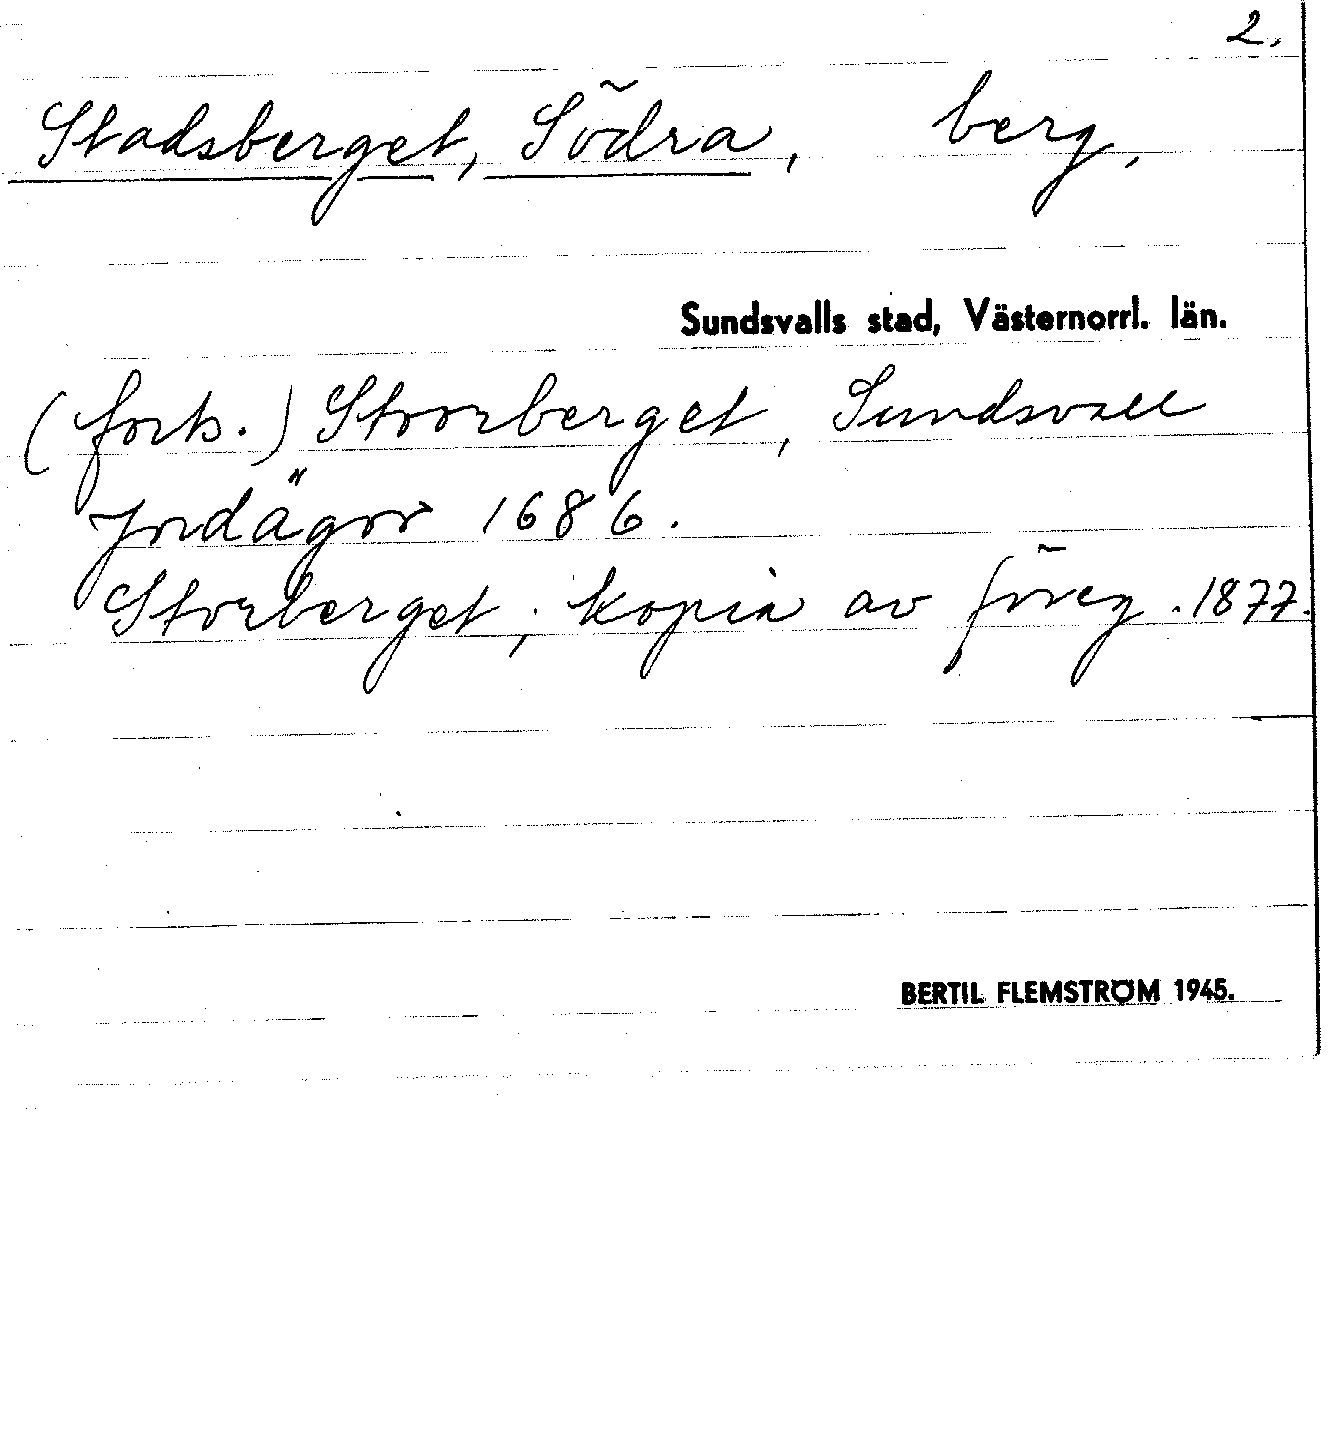 2.
Stadsberget, Södra, berg,
Sundsvalls stad, Västernorrl. län.
(forts.) Stoorberget, Sundsvall
Jordägor 1686.
Storberget; kopia av föreg. 1877.
BERTIL FLEMSTRÖM 1945.